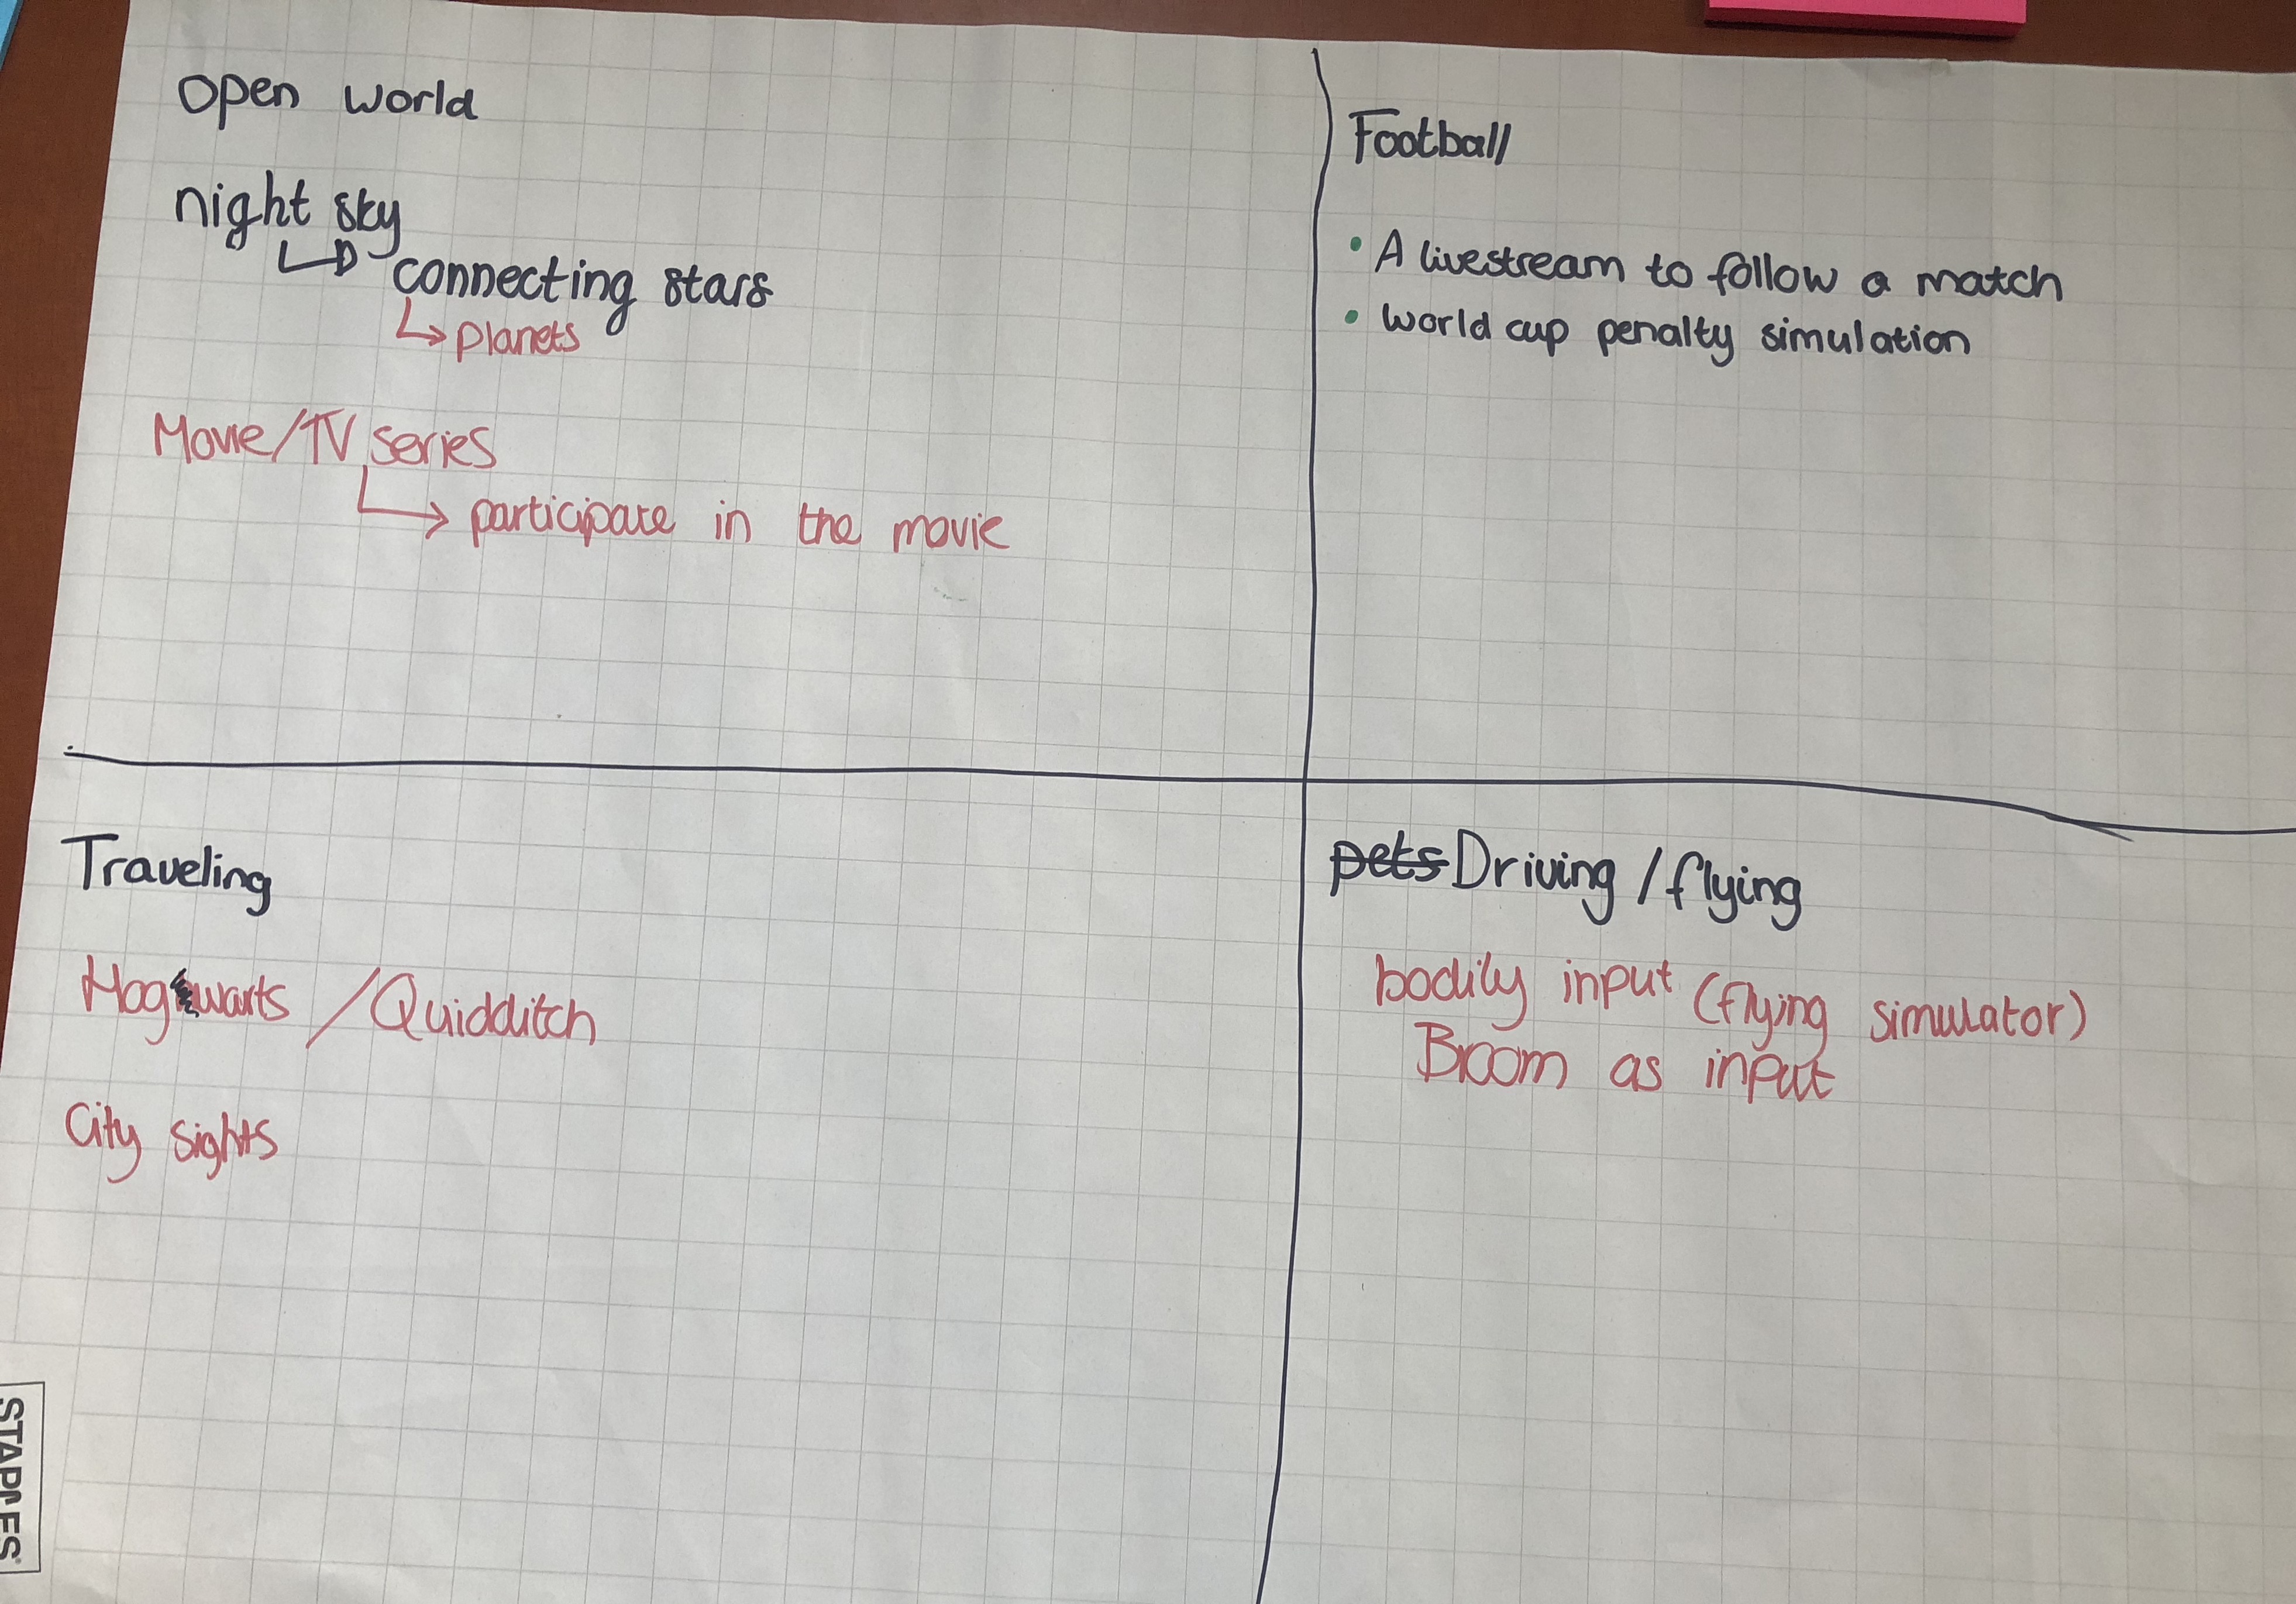 Open world
night sky
connecting stars
planets
Movie/TV series
participate in the movie
Football
• A livestream to follow a match
• World cup penalty simulation
Traveling
Hogwarts / Quidditch
City sights
pets Driving / flying
bodily input (flying simulator)
Broom as input
STAPLES